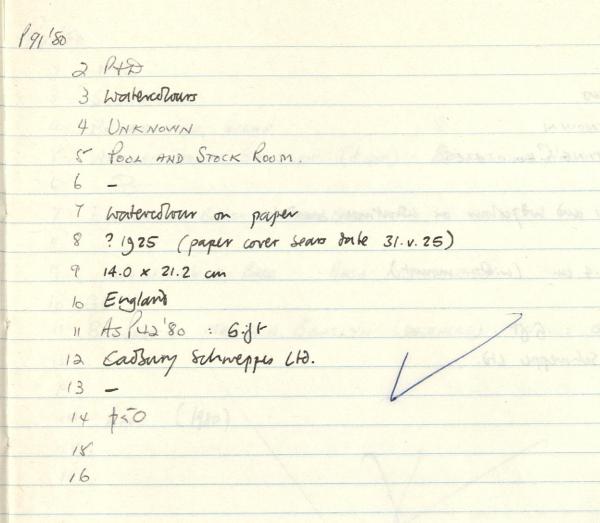 P91'80
2 P+D
3 Watercolours
4 UNKNOWN
5 POOL AND STOCK ROOM.
6 –
7 Watercolour on paper
8 ? 1925 (paper cover bears date 31.v.25)
9 14.0 x 21.2 cm
10 England
11 As P42'80 : Gift
12 Cadbury Schweppes Ltd.
13 –
14 £50
15
16